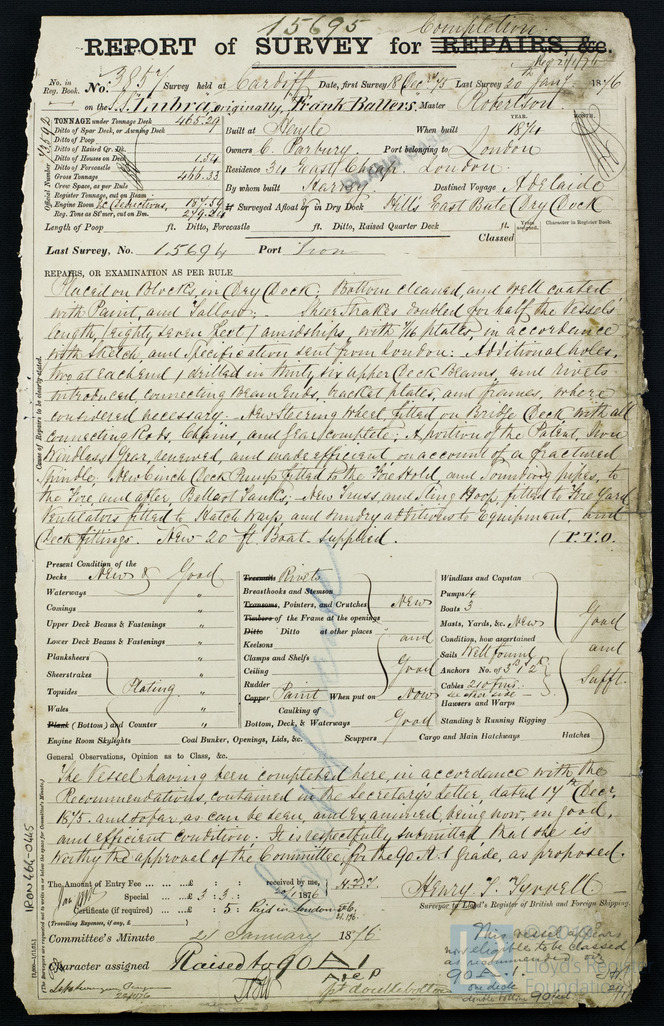 15695
Completion
REPORT of SURVEY for REPAIRS, &c.
No. in Reg. Book. No. 3857 Survey held at Cardiff Date, first Survey 18 Dec 75 Last Survey 20th Jany 1876
on the S.S. Lubra, originally, Frank Batters, Master Robertson
TONNAGE under Tonnage Deck 465.29
Ditto of Spar Deck, or Awning Deck
Ditto of Poop
Ditto of Raisrd Qr. Dk.
Ditto of Houses on Deck 1.54
Ditto of Forecastle
Gross Tonnage 466.33
Crew Space, as per Rule
Register Tonnage, cut on Beam
Engine Room &c Deductions, 187.39
Reg. Time as St'mer, cut on Bm.
Official Number
Built at Hayle When built 1874
YEAR. MONTH.
Owners C. Parbury Port belonging to London
Residence 34 East Cheap London
By whom built Harvey Destined Voyage Adelaide
If Surveyed Afloat or in Dry Dock Hill's East Bute Dry Dock
Length of Poop ft. Ditto, Forecastle ft. Ditto, Raised Quarter Deck ft. Years assigned. Character in Register Book.
Classed
Last Survey, No. 15694 Port Iron
REPAIRS, OR EXAMINATION AS PER RULE
Placed on Blocks, in Dry Dock; Bottom cleaned, and well coated
with Paint, and Tallow: Sheerstrakes doubled for half the Vessels'
length, (eighty seven feet) amidships, with 7/16 plates, in accordance
with Sketch, and Specification sent from London: Additional holes,
two at each end) drilled in thirty six upper Deck Beams, and rivets
introduced connecting Beam Ends, bracket plates, and frames, where
considered necessary. New Steering Wheel fitted on Bridge Deck, with all
connecting Rods, Chains, and Gear, complete; A portion of the Patent, Iron
Windlass Gear, renewed, and made efficient on account of a fractured
Spindle, New 6 inch Deck Pump fitted to the Fore Hold, and Sounding pipes, to
the Fore, and after, Ballast Tanks; New Truss, and Sling Hoop, fitted to Fore Yard
Ventilators fitted to Hatch Ways, and sundry additions to Equipment, and
Deck fittings. New 20 ft Boat supplied. (P.T.O.
Cause of Repairs to be clearly stated.
Present Condition of the
Decks New & Good
Waterways "
Comings "
Upper Deck Beams & Fastenings "
Lower Deck Beams & Fastenings "
Planksheers "
Sheerstrakes "
Topsides Plating "
Wales "
Plank (Bottom) and Counter "
Engine Room Skylights Coal Bunker, Openings, Lids, &c.
Treenails Rivets
Breasthooks and Stemson
Transoms, Pointers, and Crutches New
Timbers of the Frame at the openings
Ditto Ditto at other places and
Keelsons
Clamps and Shelfs
Ceiling Good
Rudder
Copper Paint When put on Now
Caulking of
Bottom, Deck, & Waterways Good
Scuppers Cargo and Main Hatchways Hatches
Windlass and Capstan
Pumps 4
Boats 3
Masts, Yards, &c. New Good
Condition, how ascertained
Sails Well found and
Anchors No. of
Cables 210 fms. Sufft.
see other side
Hawsers and Warps
Standing & Running Rigging
General Observations, Opinion as to Class, &c.
The Vessel having been completed here, in accordance with the
Recommendations, contained in the Secretary's Letter, dated 17th Decr.
1875. and so far, as can be seen, and examined, being now, in good,
and efficient condition. It is respectfully submitted that she is
worthy the approval of the Committee, for the 90 A.1 Grade, as proposed.
The Amount of Entry Fee ... £ : : received by me,
Special ... £ 3 : 3 : 1876 H.T.T
Certificate (if required) ... £ : 5 : Paid in London
(Travelling Expenses, if any, £ )
Henry T. Tyrrell
Surveyor to Lloyd's Register of British and Foreign Shipping.
Committee's Minute 21 January 1876.
Character assigned Raised to 90 A 1
pt double bottom
This vessel appears
now eligible to be classed
as recommended viz
90 A.1.
one deck
double bottom 90 feet.
IRON 466-0415
Lloyd's Register
Foundation